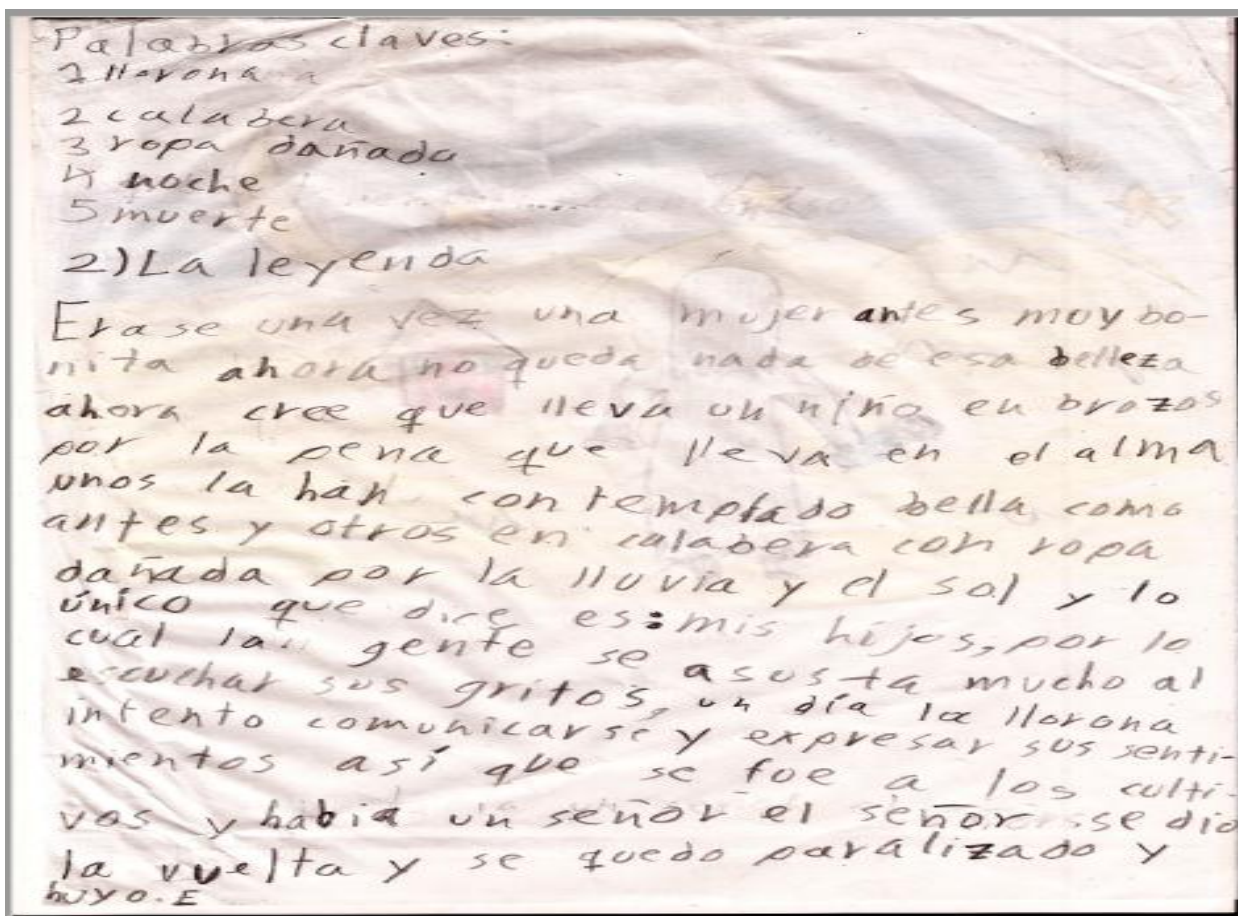 Palabras claves:
1 llorona
2 calabera
3 ropa dañada
4 noche
5 muerte
2) La leyenda
Erase una vez una mujer antes muy bo-
nita ahora no queda nada de esa belleza
ahora cree que lleva un niño en brazos
por la pena que lleva en el alma
unos la han contemplado bella como
antes y otros en calabera con ropa
dañada por la lluvia y el sol y lo
único que dice es: mis hijos, por lo
cual la gente se asusta mucho al
escuchar sus gritos, un día la llorona
intento comunicarse y expresar sus senti-
mientos así que se fue a los culti-
vos y habia un señor el señor se dio
la vuelta y se quedo paralizado y
huyo. E